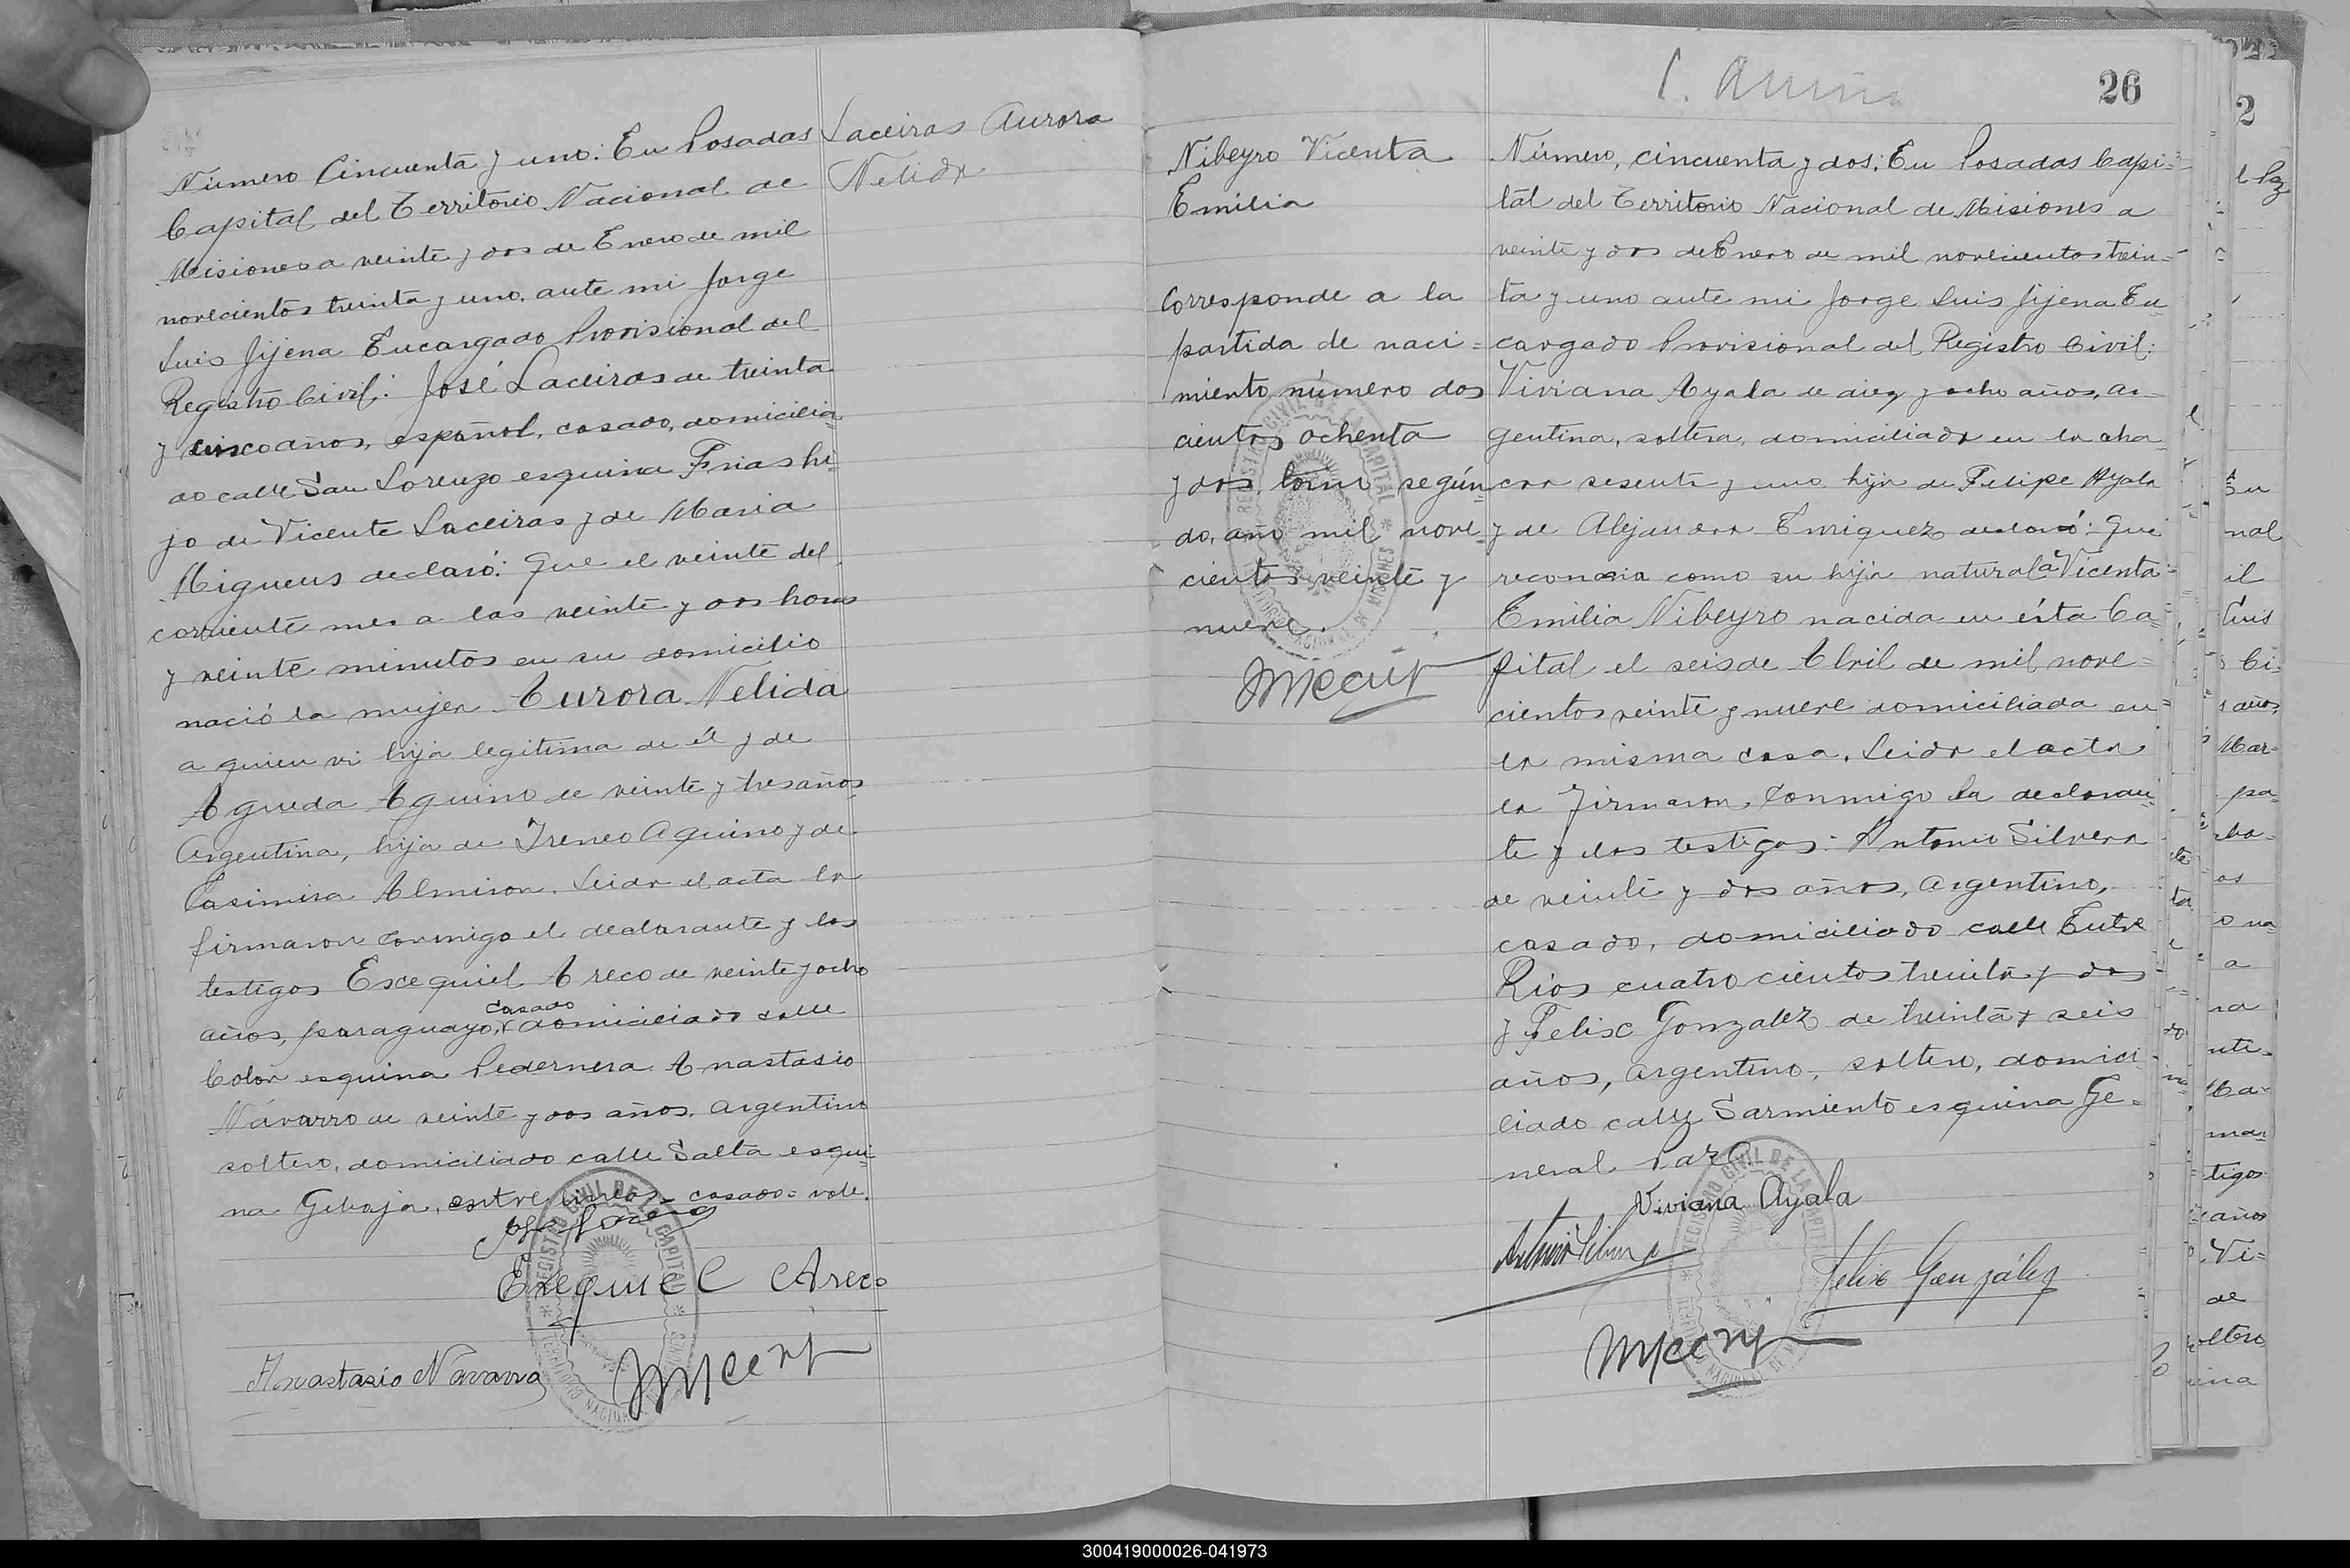 Número Cincuenta y uno: En Posadas
Capital del Territorio Nacional de
Misiones a veinte y dos de Enero de mil
novecientos treinta y uno, ante mi Jorge
Luis Jijena Encargado Provisional del
Registro Civil: José Laceiras de treinta
y cinco años, español, casado, domicilia=
do calle San Lorenzo esquina Frias hi=
jo de Vicente Laceiras y de Maria
declaró: Que el veinte del
corriente mes a las veinte y dos horas
y veinte minutos en su domicilio
nació la mujer Aurora Nelida
a quien vi hija legitima de él y de
Agueda Aquino de veinte y tres años
Argentina, hija de Ireneo Aquino y de
Casimira Almiron. Leida el acta la
firmaron conmigo el declarante y los
testigos Exequiel Areco de veinte y ocho
casado
años, paraguayo, domiciliado calle
Colón esquina Pedernera Anastasio
Navarro de veinte y dos años, argentino
soltero, domiciliado calle Salta esqui=
na, entre lineas - casado = vale.
Exequiel Areco
Anastasio Navarro
Laceiras Aurora
Nelida
26
Nibeyro Vicenta
Emilia
Corresponde a la
partida de naci=
miento número dos
cientos ochenta
y dos, tomo según
do, año mil nove=
cientos veinte y
nueve.
Número, cincuenta y dos: En Posadas Capi=
tal del Territorio Nacional de Misiones a
veinte y dos de Enero de mil novecientos trein=
ta y uno ante mi Jorge Luis Jijena En=
cargado Provisional del Registro Civil:
Viviana Ayala de diez y ocho años, ar=
gentina, soltera, domiciliada en la cha=
cra sesenta y uno hija de Felipe Ayala
y de Alejandra Enriquez declaró: Que
reconocia como su hija natural a Vicenta
Emilia Nibeyro nacida en ésta Ca=
pital el seis de Abril de mil nove=
cientos veinte y nueve domiciliada en
la misma casa. Leida el acta
la firmaron, conmigo la declaran=
te y los testigos: Antonio Silvera
de veinte y dos años, argentino,
casado, domiciliado calle Entre
Rios cuatro cientos treinta y dos
y Felix Gonzalez de treinta y seis
años, argentino, soltero, domici=
liado calle Sarmiento esquina Ge=
neral Paz.
Viviana Ayala
Antonio Silvera
Felix González
REGISTRO CIVIL DE LA CAPITAL
TERRITORIO NACIONAL DE MISIONES
300419000026-041973